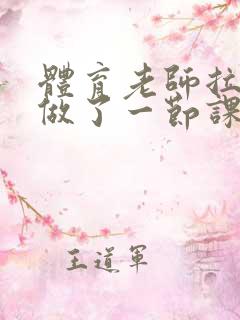 體育老師拉
做了一節課
王道軍